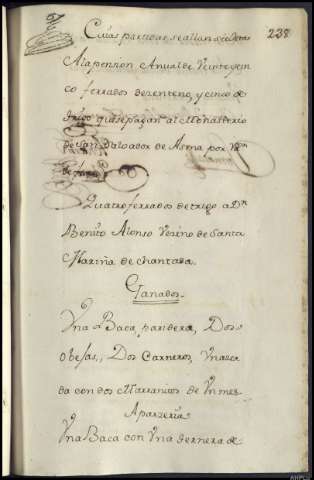 238
Cuias partidas se allan afectas
Alapension Anual de Veinte y cin
co ferrados de zenteno, y cinco de
trigo que se pagan al Monasterio
de San Salvador de Asma por
Quatro ferrados de trigo a Dn
Benito Alonso Vezino de Santa
Mariña de chantada
Ganados
Una Baca paridera, Dos
obejas, Dos Carneros, Una
da con dos Marranos de Un mes
Aparzeria
Una Baca con Una ternera de